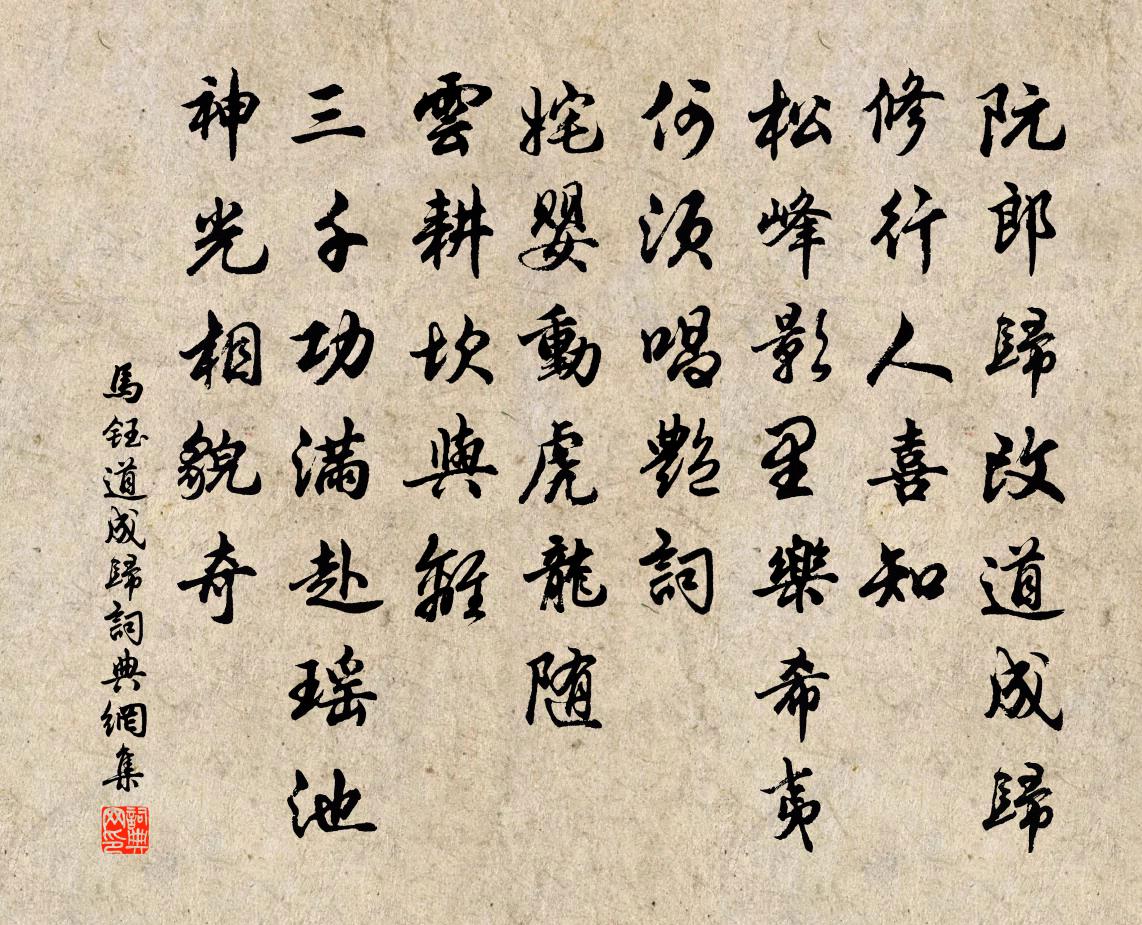 阮郎歸改道成歸
修行人喜知
松峰影里樂希夷
何須唱艷詞
姹嬰動虎龍隨
雲耕坎與離
三千功滿赴瑶池
神光相貌奇
馬鈺道成歸詞典網集
詞典網印